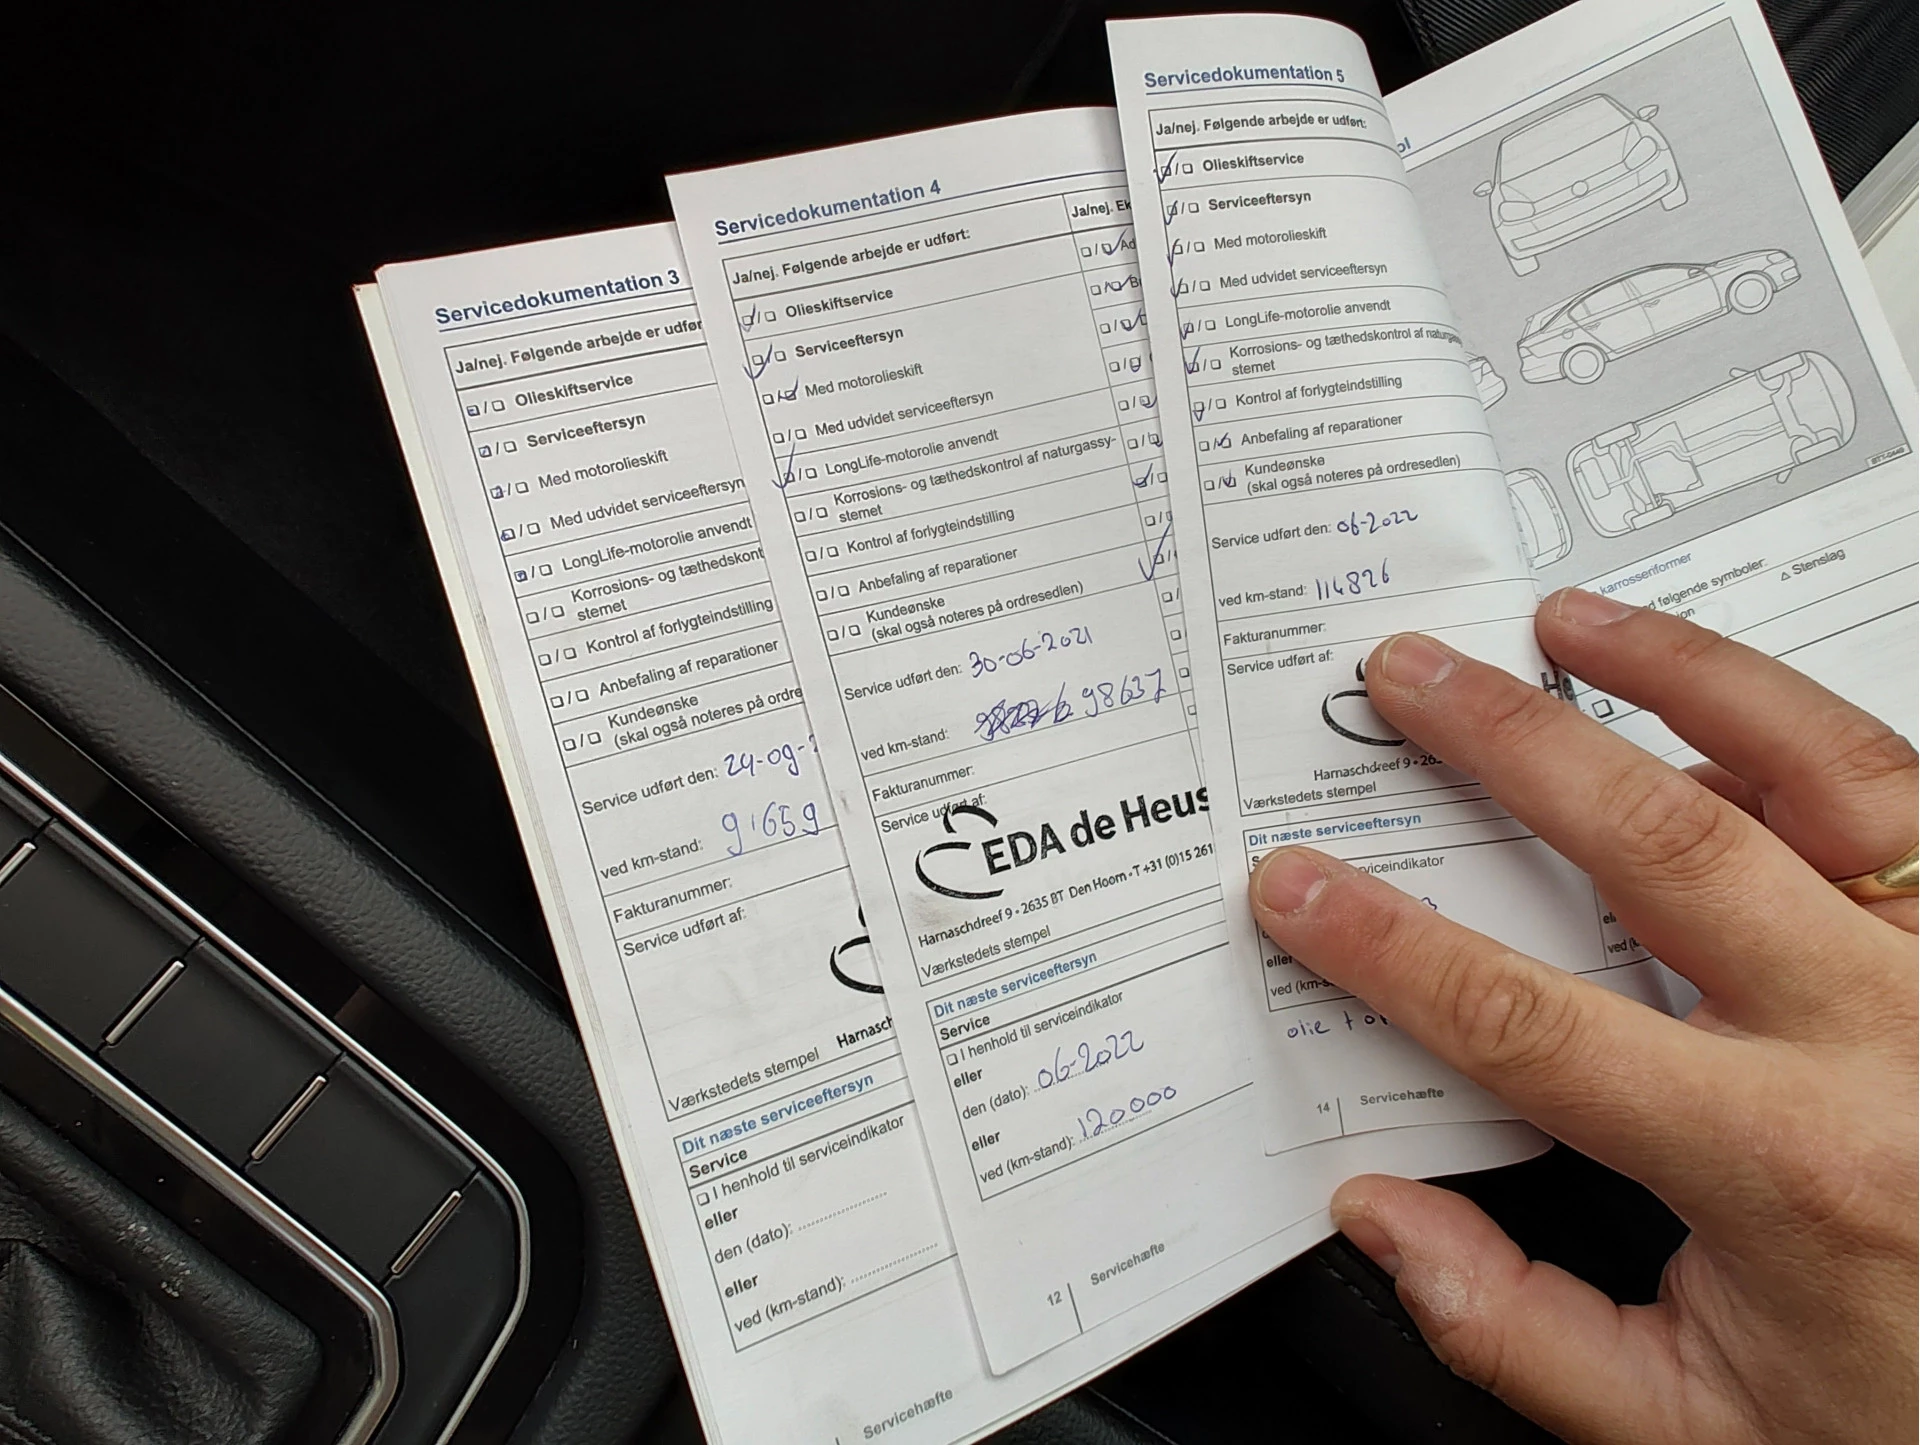 Servicedokumentation 3
Ja/nej. Følgende arbejde er udfør
Olieskiftservice
Serviceeftersyn
Med motorolieskift
Med udvidet serviceeftersyn
LongLife-motorolie anvendt
Korrosions- og tæthedskont
stemet
Kontrol af forlygteindstilling
Anbefaling af reparationer
Kundeønske
(skal også noteres på ordre
Service udført den: 24-09-
ved km-stand: 91659
Fakturanummer:
Service udført af:
Harnasch
Værkstedets stempel
Dit næste serviceeftersyn
Service
I henhold til serviceindikator
eller
den (dato):
eller
ved (km-stand):
Servicehæfte
Servicedokumentation 4
Ja/nej. Følgende arbejde er udført:
Ja/nej. Ek
Olieskiftservice
Ad
Serviceeftersyn
Med motorolieskift
Med udvidet serviceeftersyn
LongLife-motorolie anvendt
Korrosions- og tæthedskontrol af naturgassy-
stemet
Kontrol af forlygteindstilling
Anbefaling af reparationer
Kundeønske
(skal også noteres på ordresedlen)
Service udført den: 30-06-2021
ved km-stand: 98637
Fakturanummer:
Service udført af:
EDA de Heus
Harnaschdreef 9 • 2635 BT Den Hoorn • T +31 (0)15 261
Værkstedets stempel
Dit næste serviceeftersyn
Service
I henhold til serviceindikator
eller
den (dato): 06-2022
eller
ved (km-stand): 120000
12 Servicehæfte
Servicedokumentation 5
Ja/nej. Følgende arbejde er udført:
Olieskiftservice
Serviceeftersyn
Med motorolieskift
Med udvidet serviceeftersyn
LongLife-motorolie anvendt
Korrosions- og tæthedskontrol af naturgass
stemet
Kontrol af forlygteindstilling
Anbefaling af reparationer
Kundeønske
(skal også noteres på ordresedlen)
Service udført den: 06-2022
ved km-stand: 114826
Fakturanummer:
Service udført af:
He
Harnaschdreef 9 • 263
Værkstedets stempel
Dit næste serviceeftersyn
viceindikator
eller
ved (km-s
olie +
14 Servicehæfte
ol
karrosseriformer
d følgende symboler:
ion
△ Stenslag
ell
ved (k